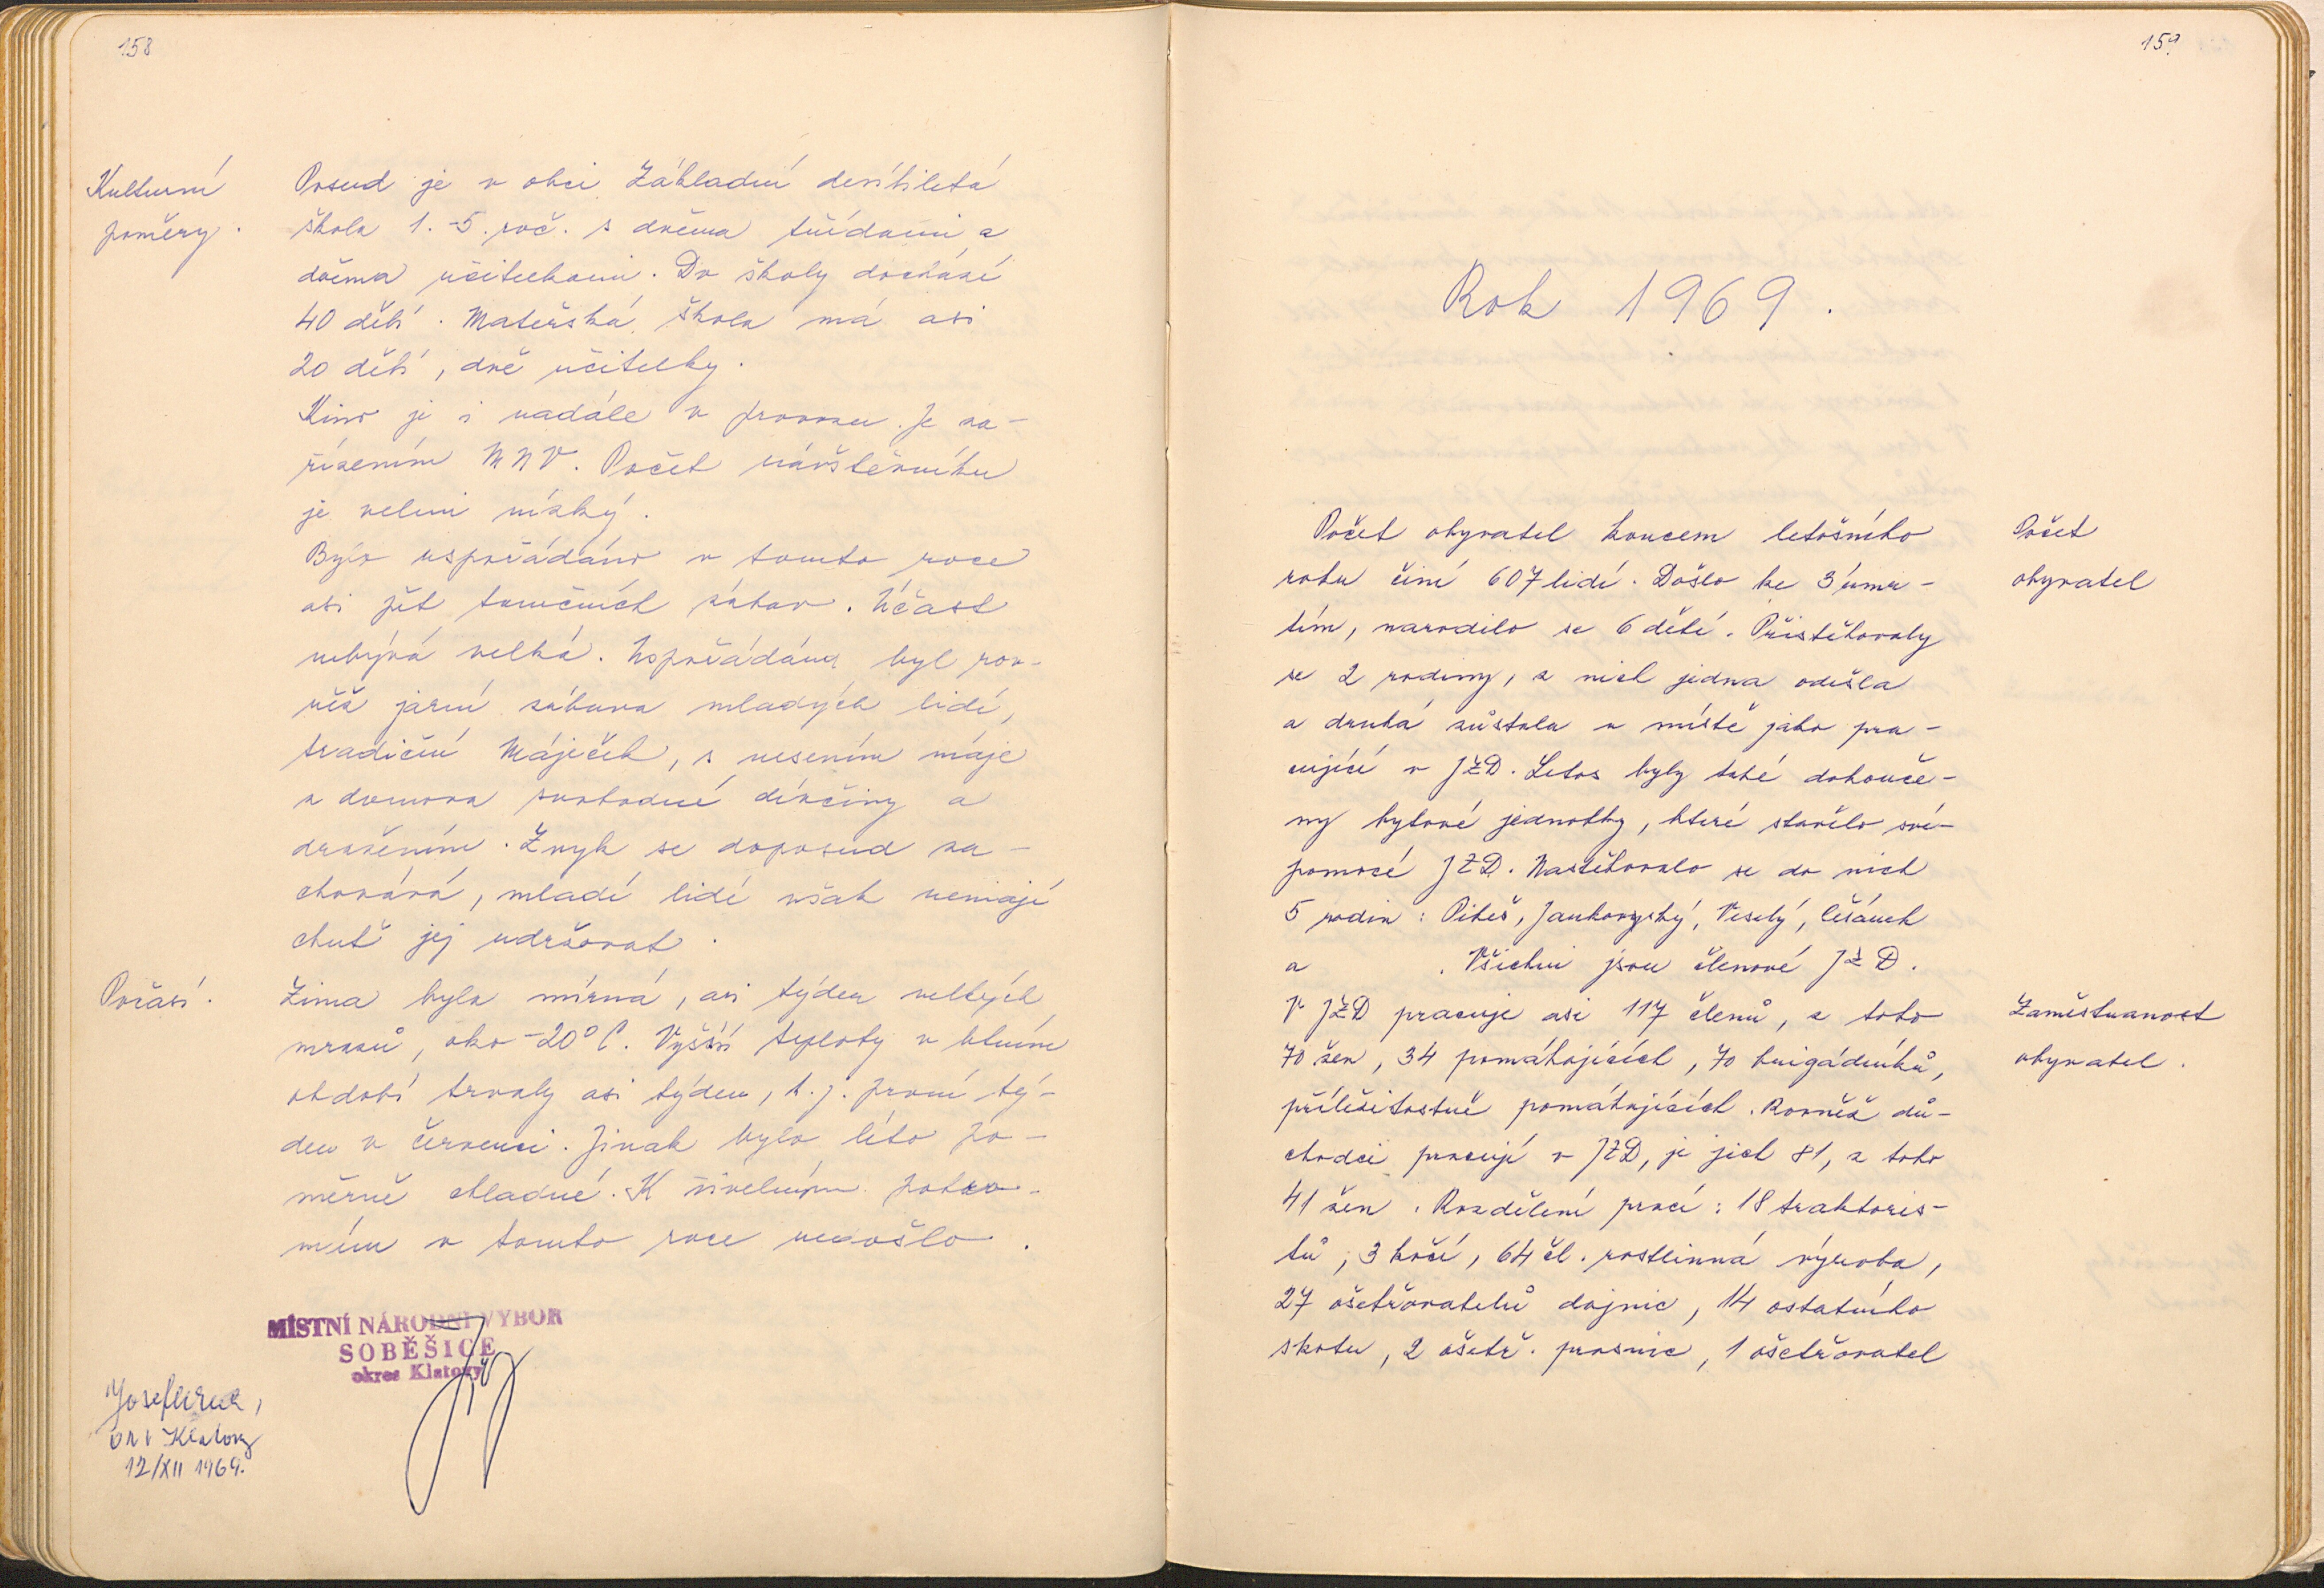 158
Kulturní
poměry.
Posud je v obci Základní devítiletá
škola 1.-5. roč. s dvěma třídami a
dvěma učitelkami. Do školy dochází
40 dětí. Mateřská škola má asi
20 dětí, dvě učitelky.
Kino je i nadále v provozu. Je za-
řízením MNV. Počet návštěvníku
je velmi nízký.
Bylo uspořádáno v tomto roce
asi pět tanečních zábav. Účast
nebývá velká. Uspořádána byl rov-
něž jarní zábava mladých lidí,
tradiční Máječek, s nesením máje
z domova svobodné děvčiny a
dražením. Zvyk se doposud za-
chovává, mladí lidé však nemají
chutě jej udržovat.
Počasí.
Zima byla mírná, asi týden velkých
mrazů, oko -20° C. Vyšší teploty v letním
období trvaly asi týden, t.j. první tý-
den v červenci. Jinak bylo léto po-
měrně chladné. K živelným pohro-
mám v tomto roce nedošlo.
MÍSTNÍ NÁRODNÍ VÝBOR
SOBĚŠICE
okres Klatovy
Klatovy
12/XII 1969.
159
Rok 1969.
Počet
obyvatel
Počet obyvatel koncem letošního
roku činí 607 lidí. Došlo ke 3 úmr-
tím, narodilo se 6 dětí. Přistěhovaly
se 2 rodiny, z nich jedna odešla
a druhá zůstala v místě jako pra-
cující v JZD. Letos byly také dokonče-
ny bytové jednotky, které stavělo své-
pomocí JZD. Nastěhovalo se do nich
5 rodin: Pikeš, Jankovský, Veselý, Češánek
a . Všichni jsou členové JZD.
Zaměstnanost
obyvatel.
V JZD pracuje asi 117 členů, z toho
70 žen, 34 pomáhajících, 70 brigádníků,
příležitostně pomáhajících. Rovněž dů-
chodci pracují v JZD, je jich 81, z toho
41 žen. Rozdělení prací: 18 traktoris-
tů, 3 kočí, 64 čl. rostlinná výroba,
27 ošetřovatelů dojnic, 14 ostatního
skotu, 2 ošetř. prasnic, 1 ošetřovatel